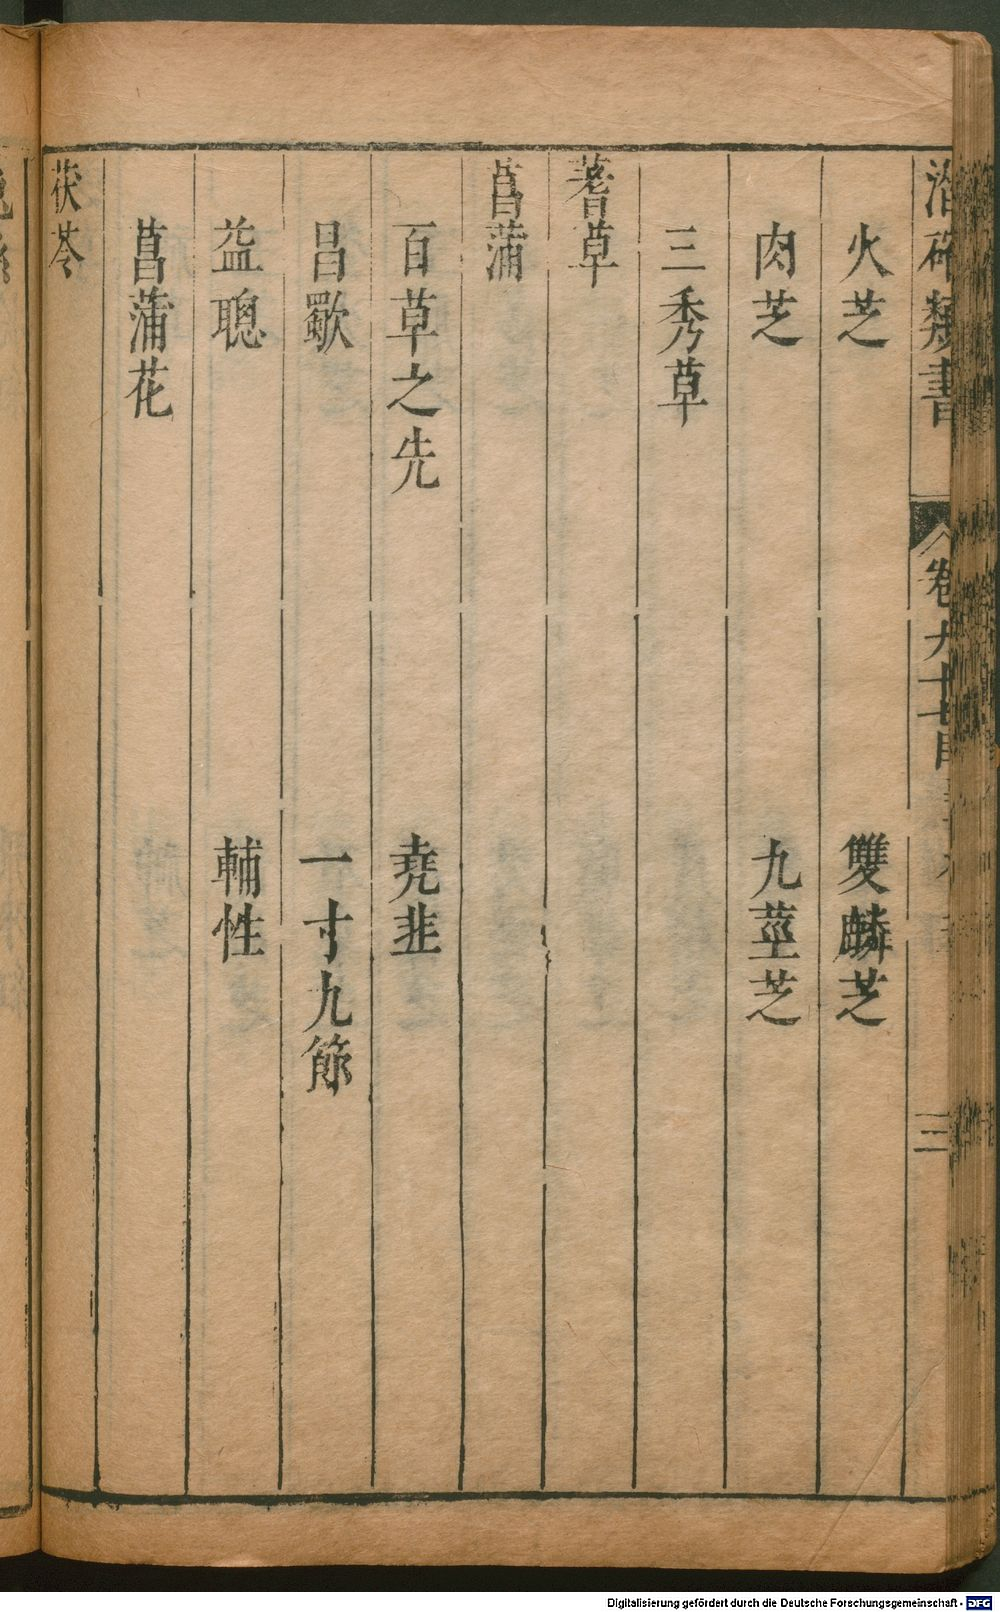 淵確類書 卷九十七目 三
火芝 雙麟芝
肉芝 九莖芝
三秀草
蓍草
菖蒲
百草之先 堯韭
昌歜 一寸九節
益聰 輔性
菖蒲花
茯苓
Digitalisierung gefördert durch die Deutsche Forschungsgemeinschaft - DFG